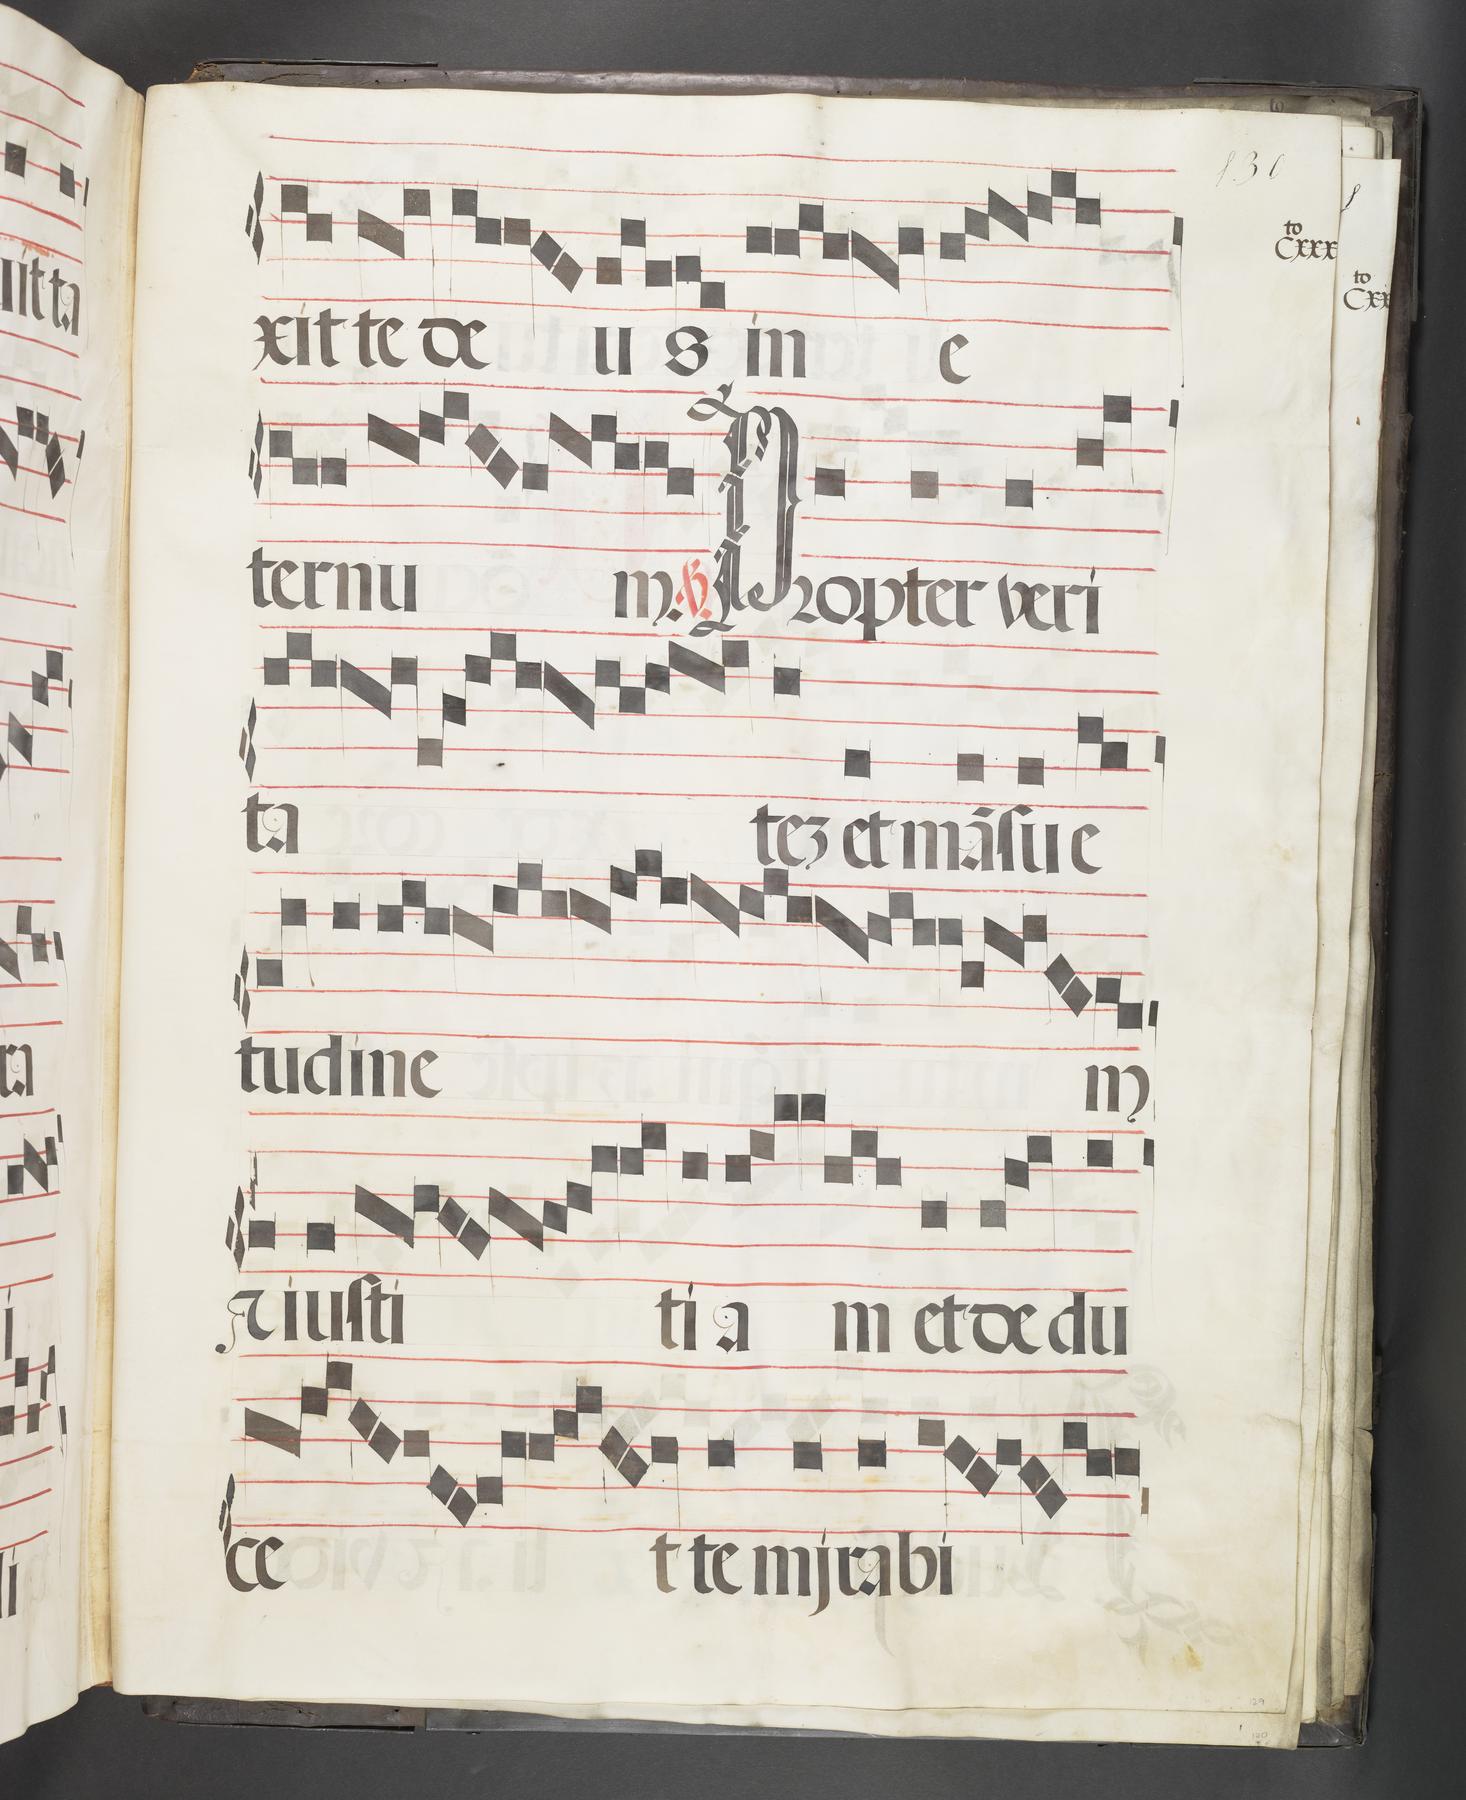 130
to
Cxxx
to
Cxx
xit te de u s in e
ternu m. ℣. Propter veri
ta tez et mãsue
tudine m
et iusti ti a m et de du
ce t te mirabi
129
130
uit ta
ra
i
li